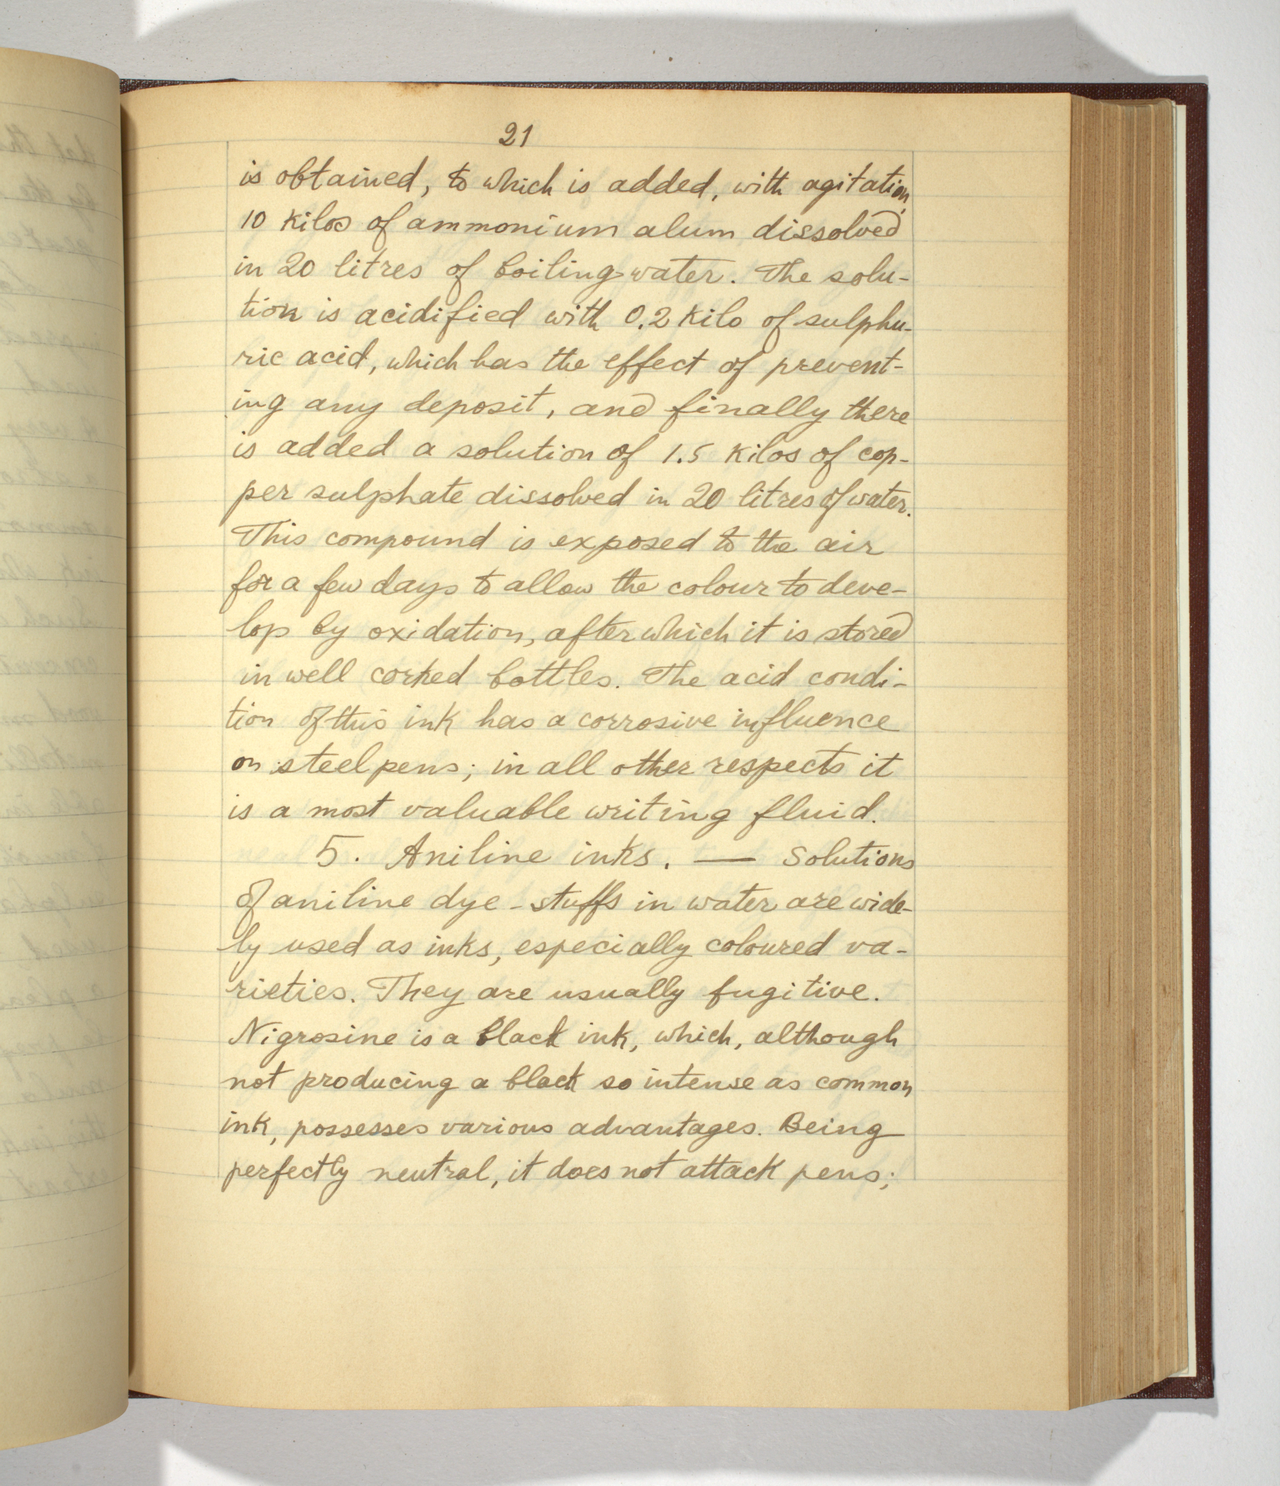 21
is obtained, to which is added, with agitation,
10 kilos of ammonium alum dissolved
in 20 litres of boiling water. The solu-
tion is acidified with 0.2 kilo of sulphu-
ric acid, which has the effect of prevent-
ing any deposit, and finally there
is added a solution of 1.5 kilos of cop-
per sulphate dissolved in 20 litres of water.
This compound is exposed to the air
for a few days to allow the colour to deve-
lop by oxidation, after which it is stored
in well corked bottles. The acid condi-
tion of this ink has a corrosive influence
on steel pens; in all other respects it
is a most valuable writing fluid.
5. Aniline inks. — Solutions
of aniline dye-stuffs in water are wide-
ly used as inks, especially coloured va-
rieties. They are usually fugitive.
Nigrosine is a black ink, which, although
not producing a black so intense as common
ink, possesses various advantages. Being
perfectly neutral, it does not attack pens;